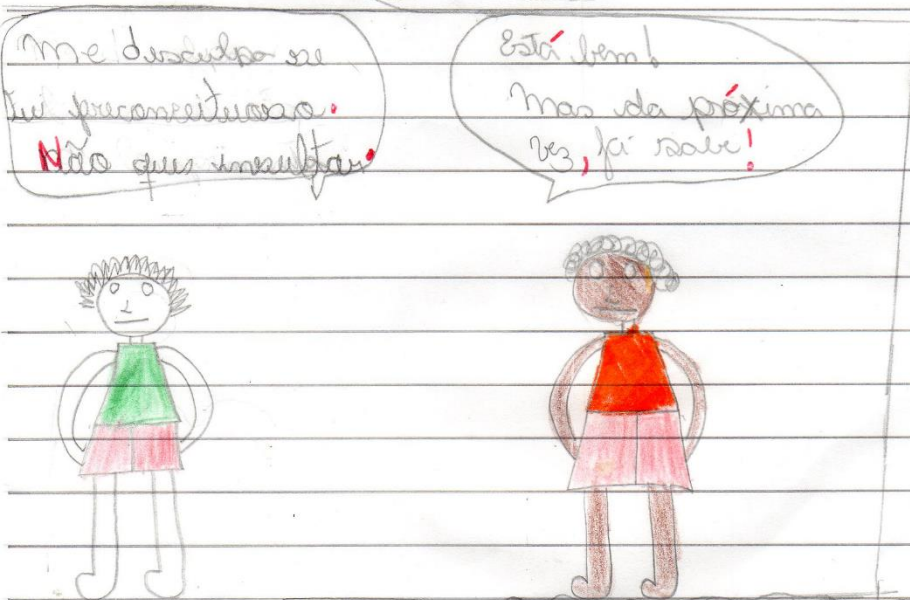 Me desculpa se
fui preconceituoso.
Não quis insultar.
Está bem!
Mas da próxima
vez, já sabe!